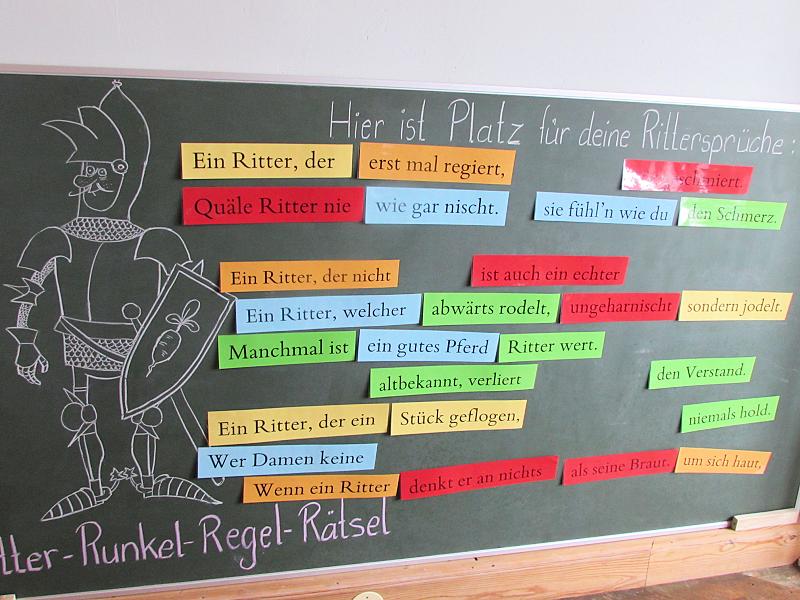 Hier ist Platz für deine Rittersprüche:
Ein Ritter, der erst mal regiert, schmiert.
Quäle Ritter nie wie gar nischt. sie fühl'n wie du den Schmerz.
Ein Ritter, der nicht ist auch ein echter
Ein Ritter, welcher abwärts rodelt, ungeharnischt sondern jodelt.
Manchmal ist ein gutes Pferd Ritter wert.
altbekannt, verliert den Verstand.
Ein Ritter, der ein Stück geflogen, niemals hold.
Wer Damen keine
Wenn ein Ritter denkt er an nichts als seine Braut. um sich haut,
tter-Runkel-Regel-Rätsel